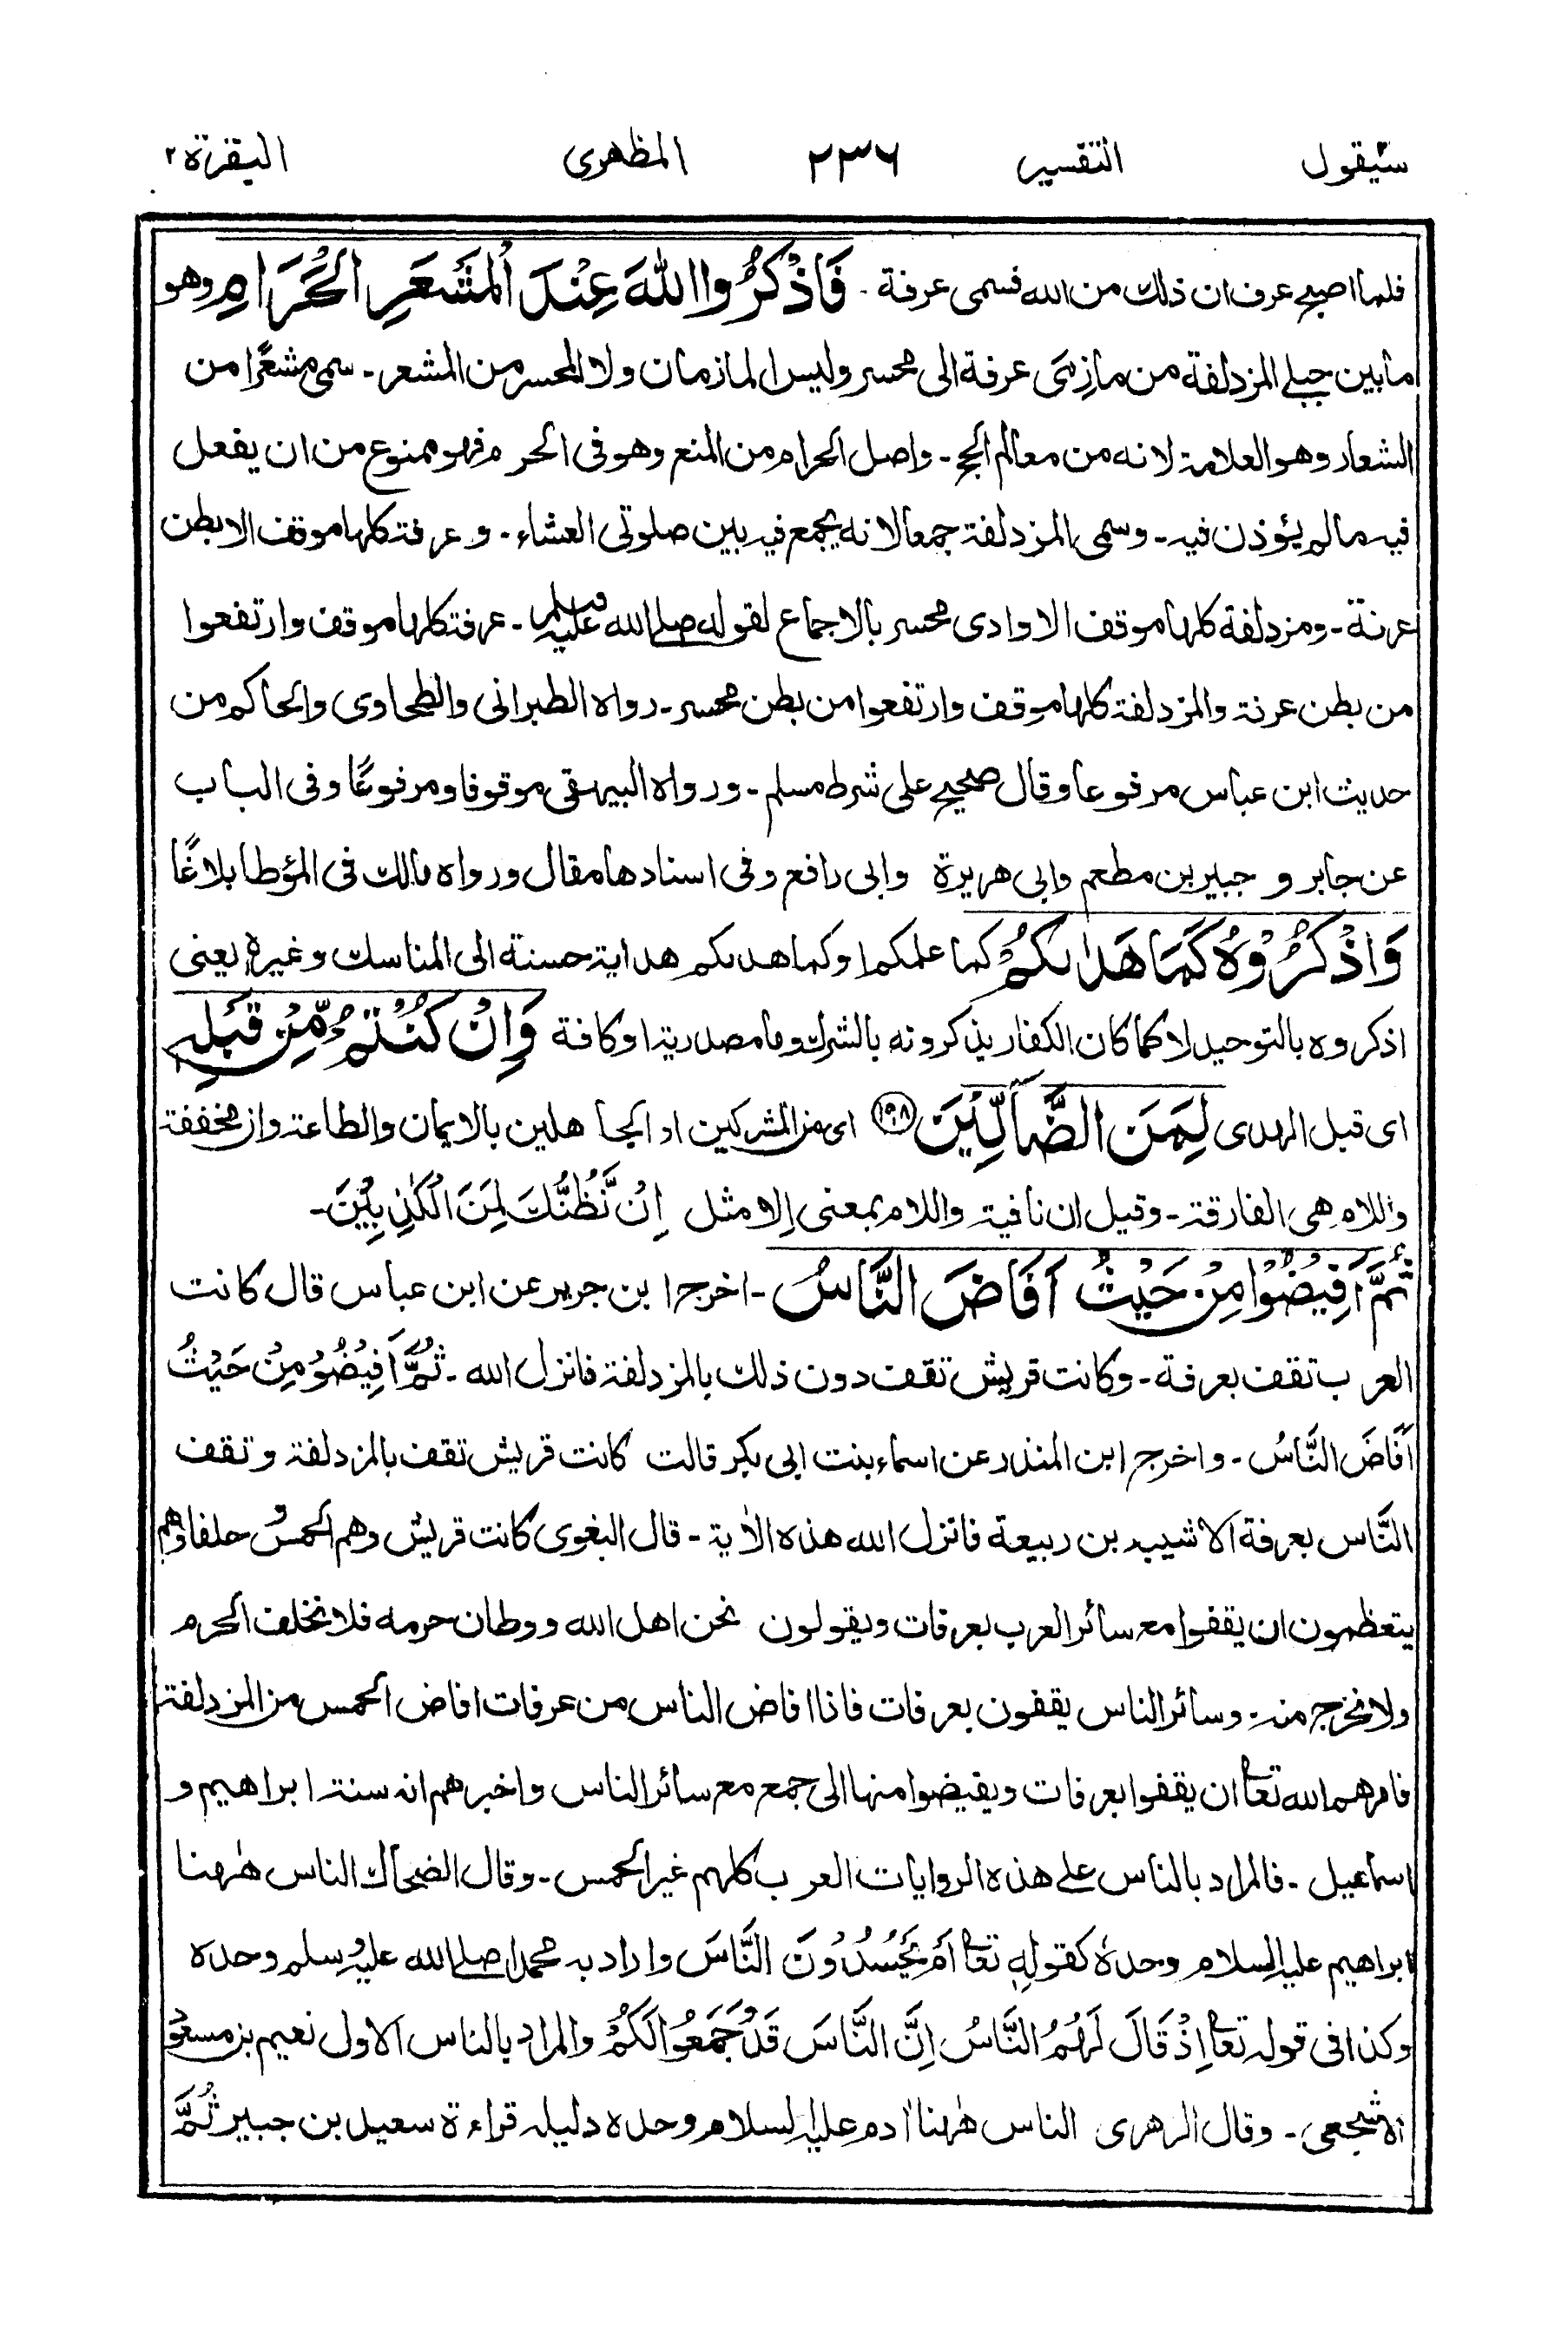 سيقول التفسير ٢٣٦ المظهرى البقرة ٢
فلما اصبح عرف ان ذلك من الله فسمى عرفة - فَاذْكُرُوا اللّٰهَ عِنْدَ الْمَشْعَرِ الْحَرَامِ وهو
ما بين جبلى المزدلفة من مازمَى عرفة الى محسر وليس المازمان ولا المحسر من المشعر - سمى مشعرًا من
الشعار وهو العلامة لانه من معالم الحج - واصل الحرام من المنع وهو فى الحرم فهو ممنوع من ان يفعل
فيه ما لم يؤذن فيه - وسمى المزدلفة جمعا لانه يجمع فيه بين صلوتى العشاء - وعرفة كلها موقف الا بطن
عرنة - ومزدلفة كلها موقف الا وادى محسر بالاجماع لقوله صلى الله عليه وسلم - عرفة كلها موقف وارتفعوا
من بطن عرنة والمزدلفة كلها موقف وارتفعوا من بطن محسر - رواه الطبرانى والطحاوى والحاكم من
حديث ابن عباس مرفوعا وقال صحيح على شرط مسلم - ورواه البيهقى موقوفا ومرفوعًا وفى الباب
عن جابر و جبير بن مطعم وابى هريرة وابى رافع وفى اسنادها مقال ورواه مالك فى المؤطا بلاغًا
وَاذْكُرُوْهُ كَمَا هَدٰىكُمْ كما علمكم او كما هدىكم هداية حسنة الى المناسك وغيره يعنى
اذكروه بالتوحيد لا كما كان الكفار يذكرونه بالشرك وما مصدرية او كافة وَاِنْ كُنْتُمْ مِّنْ قَبْلِهٖ
اى قبل الهدى لَمِنَ الضَّآلِّيْنَ ﴿١٩٨﴾ اى من المشركين او الجاهلين بالايمان والطاعة وان مخففة
واللام هى الفارقة - وقيل ان نافية واللام بمعنى إلا مثل اِنْ نَّظُنُّكَ لَمِنَ الْكٰذِبِيْنَ -
ثُمَّ اَفِيْضُوْا مِنْ حَيْثُ اَفَاضَ النَّاسُ - اخرج ابن جرير عن ابن عباس قال كانت
العرب تقف بعرفة - وكانت قريش تقف دون ذلك بالمزدلفة فانزل الله - ثُمَّ اَفِيْضُوْ مِنْ حَيْثُ
اَفَاضَ النَّاسُ - واخرج ابن المنذر عن اسماء بنت ابى بكر قالت كانت قريش تقف بالمزدلفة وتقف
النَّاس بعرفة الا شيبه بن ربيعة فانزل الله هذه الاٰية - قال البغوى كانت قريش وهم الحمس وحلفاؤهم
يتعظمون ان يقفوا مع سائر العرب بعرفات ويقولون نحن اهل الله ووطان حرمه فلا نخلف الحرم
ولا نخرج منه - وسائر الناس يقفون بعرفات فاذا افاض الناس من عرفات افاض الحمس من المزدلفة
فامرهم الله تعا ان يقفوا بعرفات ويفيضوا منها الى جمع مع سائر الناس واخبرهم انه سنة ابراهيم و
اسماعيل - فالمراد بالناس على هذه الروايات العرب كلهم غير الحمس - وقال الضحاك الناس هٰهنا
ابراهيم عليه السلام وحدهٗ كقولهٖ تعا اَمْ يَحْسُدُوْنَ النَّاسَ واراد به محمدا صلى الله عليه وسلم وحده
وكذا فى قوله تعا اِذْ قَالَ لَهُمُ النَّاسُ اِنَّ النَّاسَ قَدْ جَمَعُوْا لَكُمْ والمراد بالناس الاول نعيم بن مسعود
الاشجعى - وقال الزهرى الناس هٰهنا اٰدم عليه السلام وحده دليله قراءة سعيد بن جبير ثُمَّ